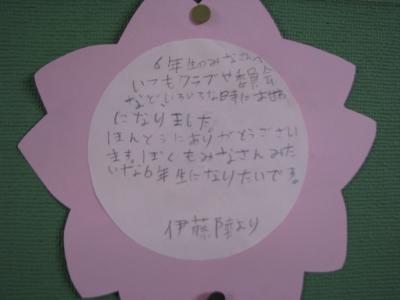 6年生のみなさんへ
いつもクラブや委員会
など、いろいろな時にお世話
になりました。
ほんとうにありがとうござい
ます。ぼくもみなさんみた
いな6年生になりたいです。
伊藤陸より